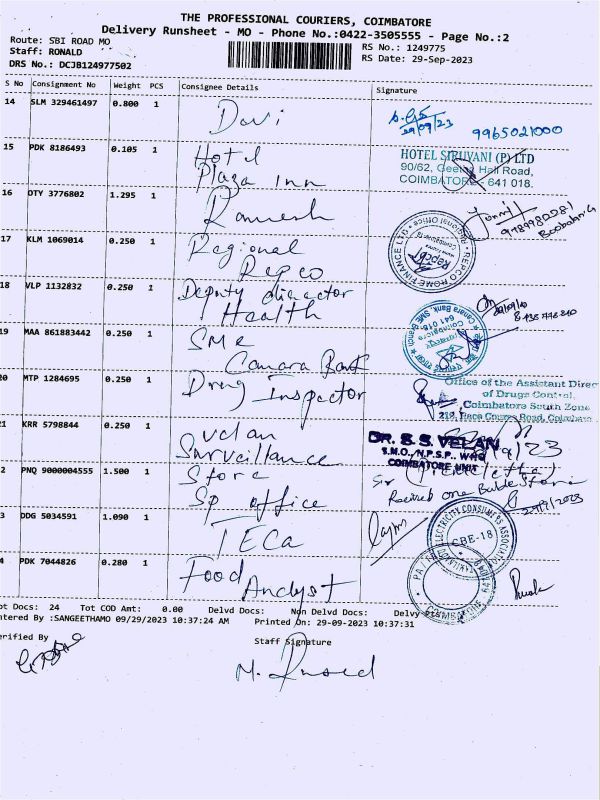 THE PROFESSIONAL COURIERS, COIMBATORE
Delivery Runsheet - MO - Phone No.:0422-3505555 - Page No.:2
Route: SBI ROAD MO
Staff: RONALD
DRS No.: DCJB124977502
RS No.: 1249775
RS Date: 29-Sep-2023
S No Consignment No Weight PCS Consignee Details Signature
14 SLM 329461497 0.800 1
29/09/23 9965021000
15 PDK 8186493 0.105 1 Hotel Plaza Inn
HOTEL SIRUVANI (P) LTD
90/62, Geetha Hall Road,
COIMBATORE - 641 018.
16 OTY 3776802 1.295 1 Ramesh
9789980281
17 KLM 1069014 0.250 1 Regional Repco
REPCO HOME FINANCE LTD
18 VLP 1132832 0.250 1 Deputy director Health
19 MAA 861883442 0.250 1 SME Canara Bank
Canara Bank, SME Branch
Coimbatore
641 018
20 MTP 1284695 0.250 1 Drug Inspector
Office of the Assistant Direc
of Drugs Control,
Coimbatore South Zone
219, Race Course Road, Coimbatore
21 KRR 5798844 0.250 1 velan Surveillance
DR. S. S. VELAN
S.M.O., N.P.S.P., WHO
COIMBATORE UNIT
2 PNQ 9000004555 1.500 1 Store Sp office
Received one Bundle
29/9/2023
3 DDG 5034591 1.090 1 TECa
ELECTRICITY CONSUMERS ASSOCIATION
CBE-18
4 PDK 7044826 0.280 1 Food Analyst
ot Docs: 24 Tot COD Amt: 0.00 Delvd Docs: Non Delvd Docs:
ntered By :SANGEETHAMO 09/29/2023 10:37:24 AM Printed On: 29-09-2023 10:37:31
erified By Staff Signature